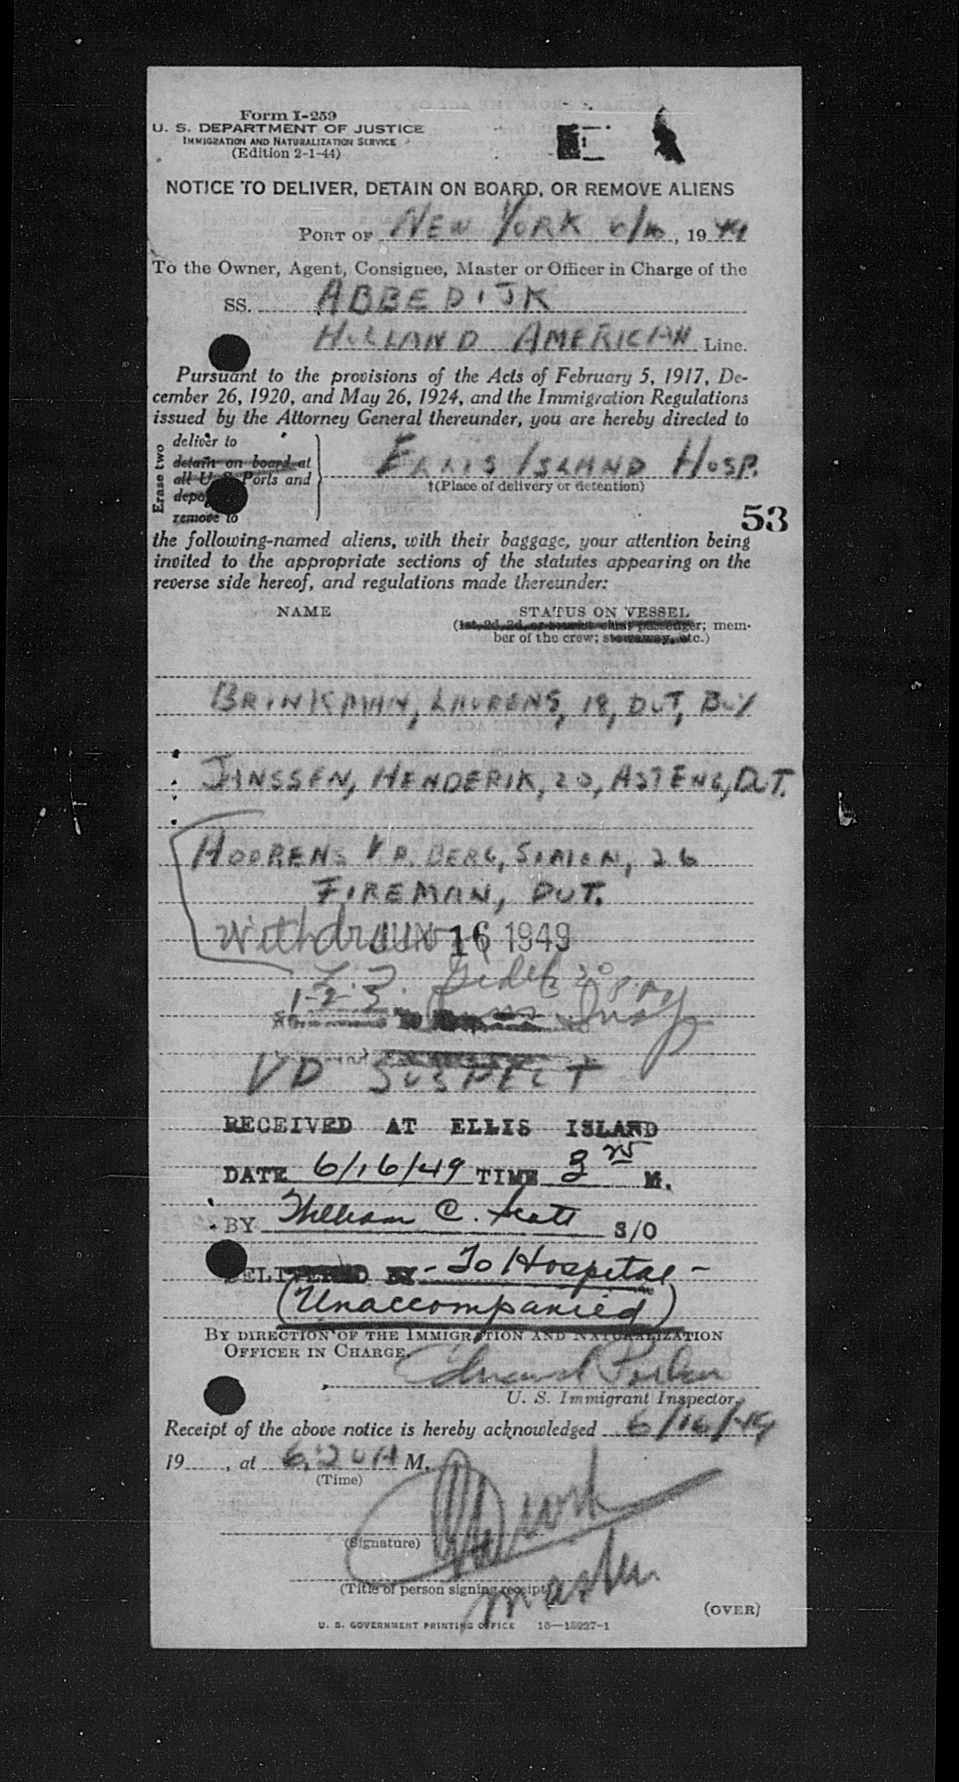 Form I-259
U. S. DEPARTMENT OF JUSTICE
IMMIGRATION AND NATURALIZATION SERVICE
(Edition 2-1-44)
NOTICE TO DELIVER, DETAIN ON BOARD, OR REMOVE ALIENS
PORT OF NEW YORK 6/16, 1949
To the Owner, Agent, Consignee, Master or Officer in Charge of the
SS. ABBEDIJK
HOLLAND AMERICAN Line.
Pursuant to the provisions of the Acts of February 5, 1917, De-
cember 26, 1920, and May 26, 1924, and the Immigration Regulations
issued by the Attorney General thereunder, you are hereby directed to
Erase two
deliver to
detain on board at
all U. S. Ports and
remove to
ELLIS ISLAND HOSP.
†(Place of delivery or detention)
53
the following-named aliens, with their baggage, your attention being
invited to the appropriate sections of the statutes appearing on the
reverse side hereof, and regulations made thereunder:
NAME STATUS ON VESSEL
(1st, 2d, 3d, or tourist class passenger; mem-
ber of the crew; stowaway, etc.)
BRINKMAN, LAURENS, 18, DUT, BOY
JANSSEN, HENDERIK, 20, AST ENG, DUT.
HOORENS V.D. BERG, SIMON, 26
FIREMAN, DUT.
Withdr JUN 16 1949
1-2-3
VD SUSPECT
RECEIVED AT ELLIS ISLAND
DATE 6/16/49 TIME 3 M.
BY William C. Scott S/O
DELIVERED BY - To Hospital -
(Unaccompanied)
BY DIRECTION OF THE IMMIGRATION AND NATURALIZATION
OFFICER IN CHARGE.
Edward
U. S. Immigrant Inspector.
Receipt of the above notice is hereby acknowledged 6/16/49
19 , at 6:20 A M.
(Time)
(Signature)
master
(Title of person signing receipt)
(OVER)
U. S. GOVERNMENT PRINTING OFFICE 16—15227-1